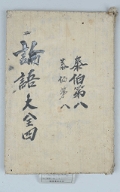 泰伯第八
泰伯第八
論語大全四